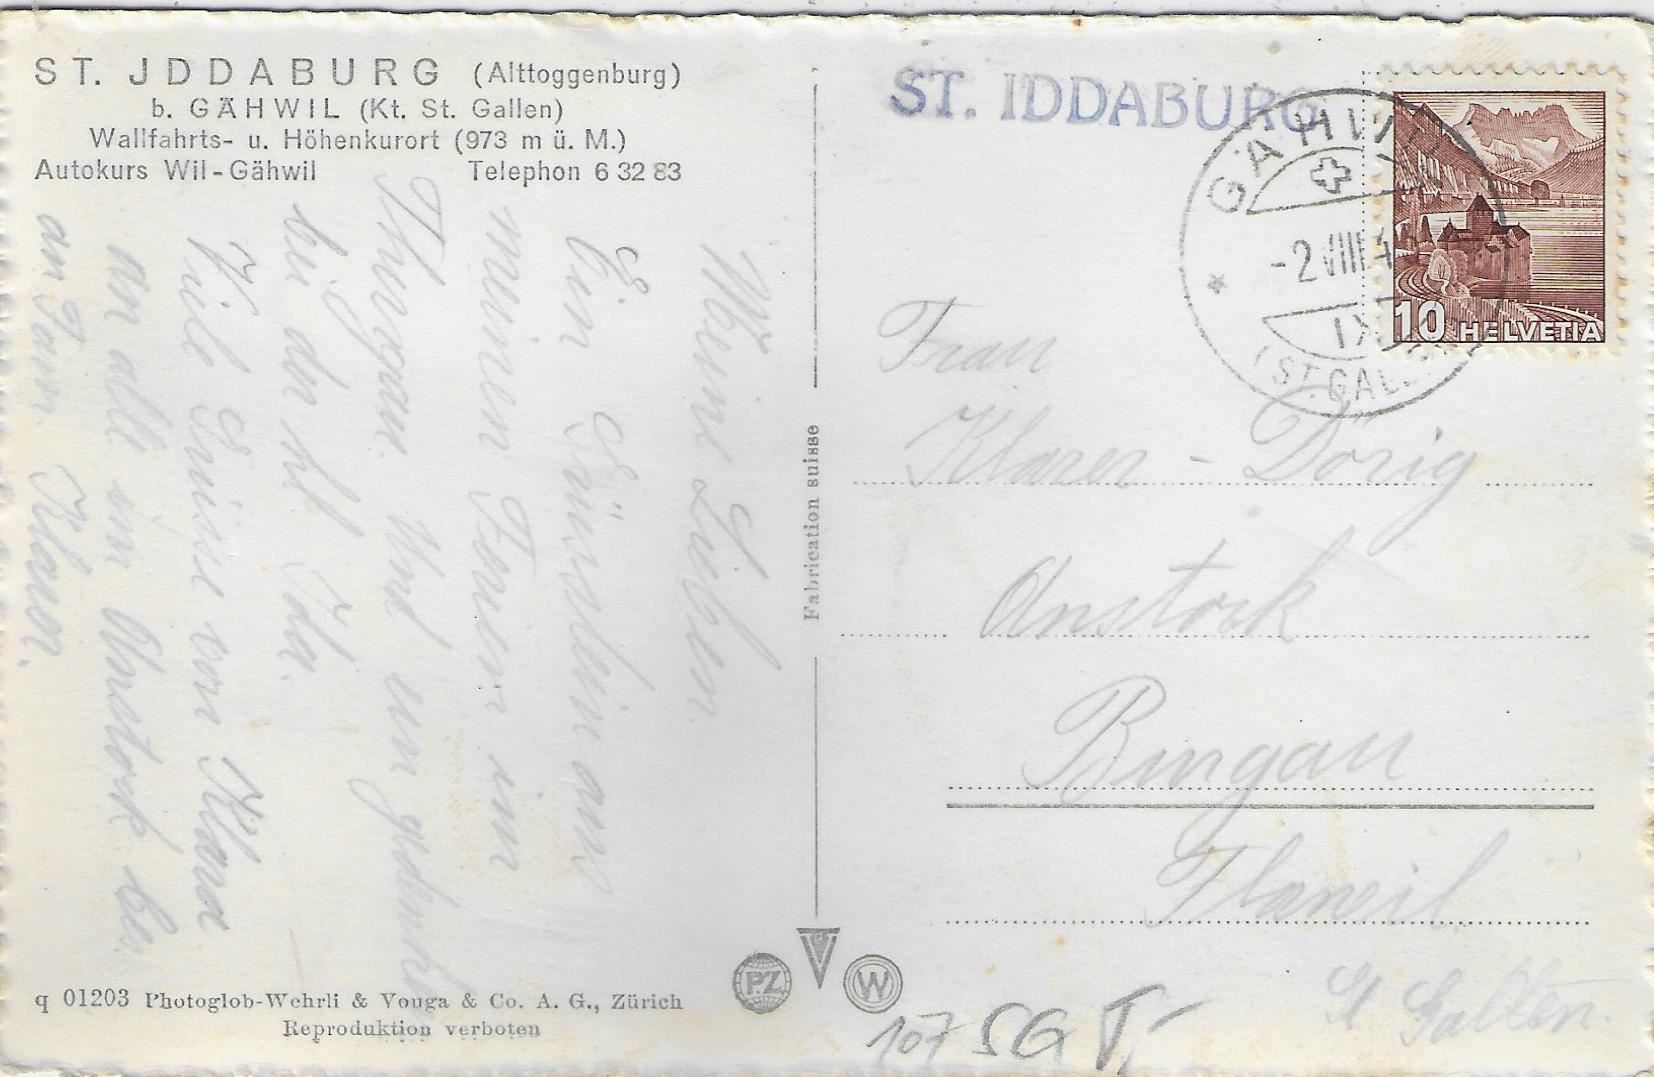 ST. JDDABURG (Alttoggenburg)
b. GÄHWIL (Kt. St. Gallen)
Wallfahrts- u. Höhenkurort (973 m ü. M.)
Autokurs Wil-Gähwil Telephon 6 32 83
Meine Lieben
Ein Grüsslein aus
meinen Ferien im
Thurgau. Und ein gedenke
bei der hl. Ida.
Viele Grüsse von Klara
an alle im Anstock be.
an Fam. Klarer.
q 01203 Photoglob-Wehrli & Vouga & Co. A. G., Zürich
Reproduktion verboten
Fabrication suisse
PZ V W
ST. IDDABURG
GÄHWIL
-2.VIII.4
IX
(ST. GAL
10 HELVETIA
Frau
Klarer - Dörig
Anstock
Burgau
Flawil
St Gallen.
107 SG